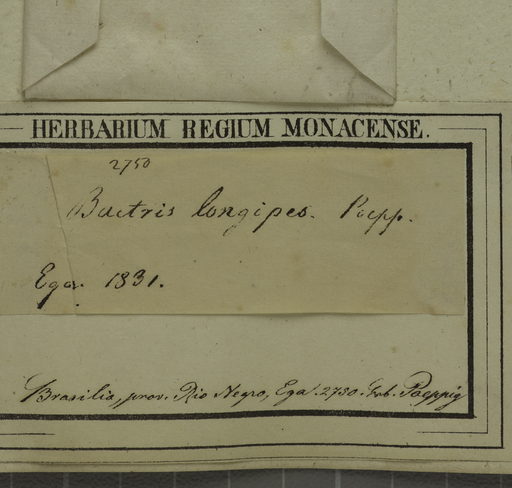 HERBARIUM REGIUM MONACENSE.
2750
Bactris longipes. Poepp.
Ega. 1831.
Brasilia, prov. Rio Negro, Ega. 2750. Poeppig